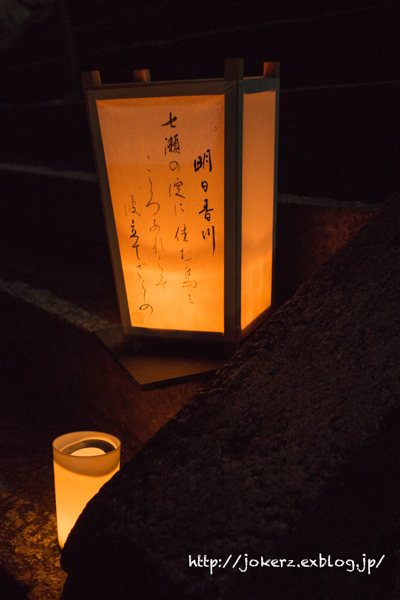 明日香川
七瀬の淀に住む鳥も
こころあれこそ
波立てざらめ
http://jokerz.exblog.jp/